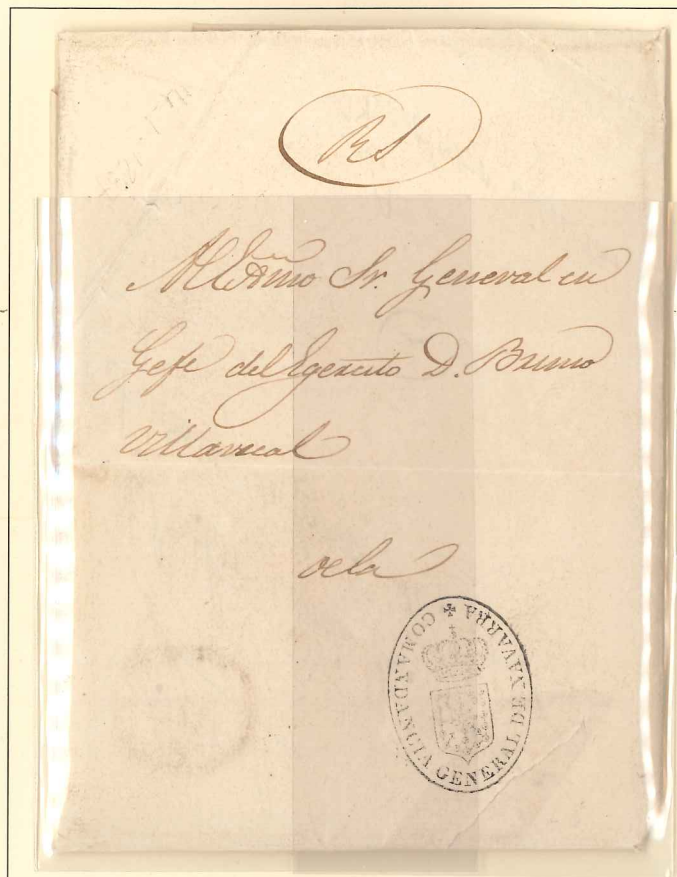 RS
Al Exmo Sr. General en
Gefe del Egercito D. Bruno
Villarreal
de la
COMANDANCIA GENERAL DE NAVARRA